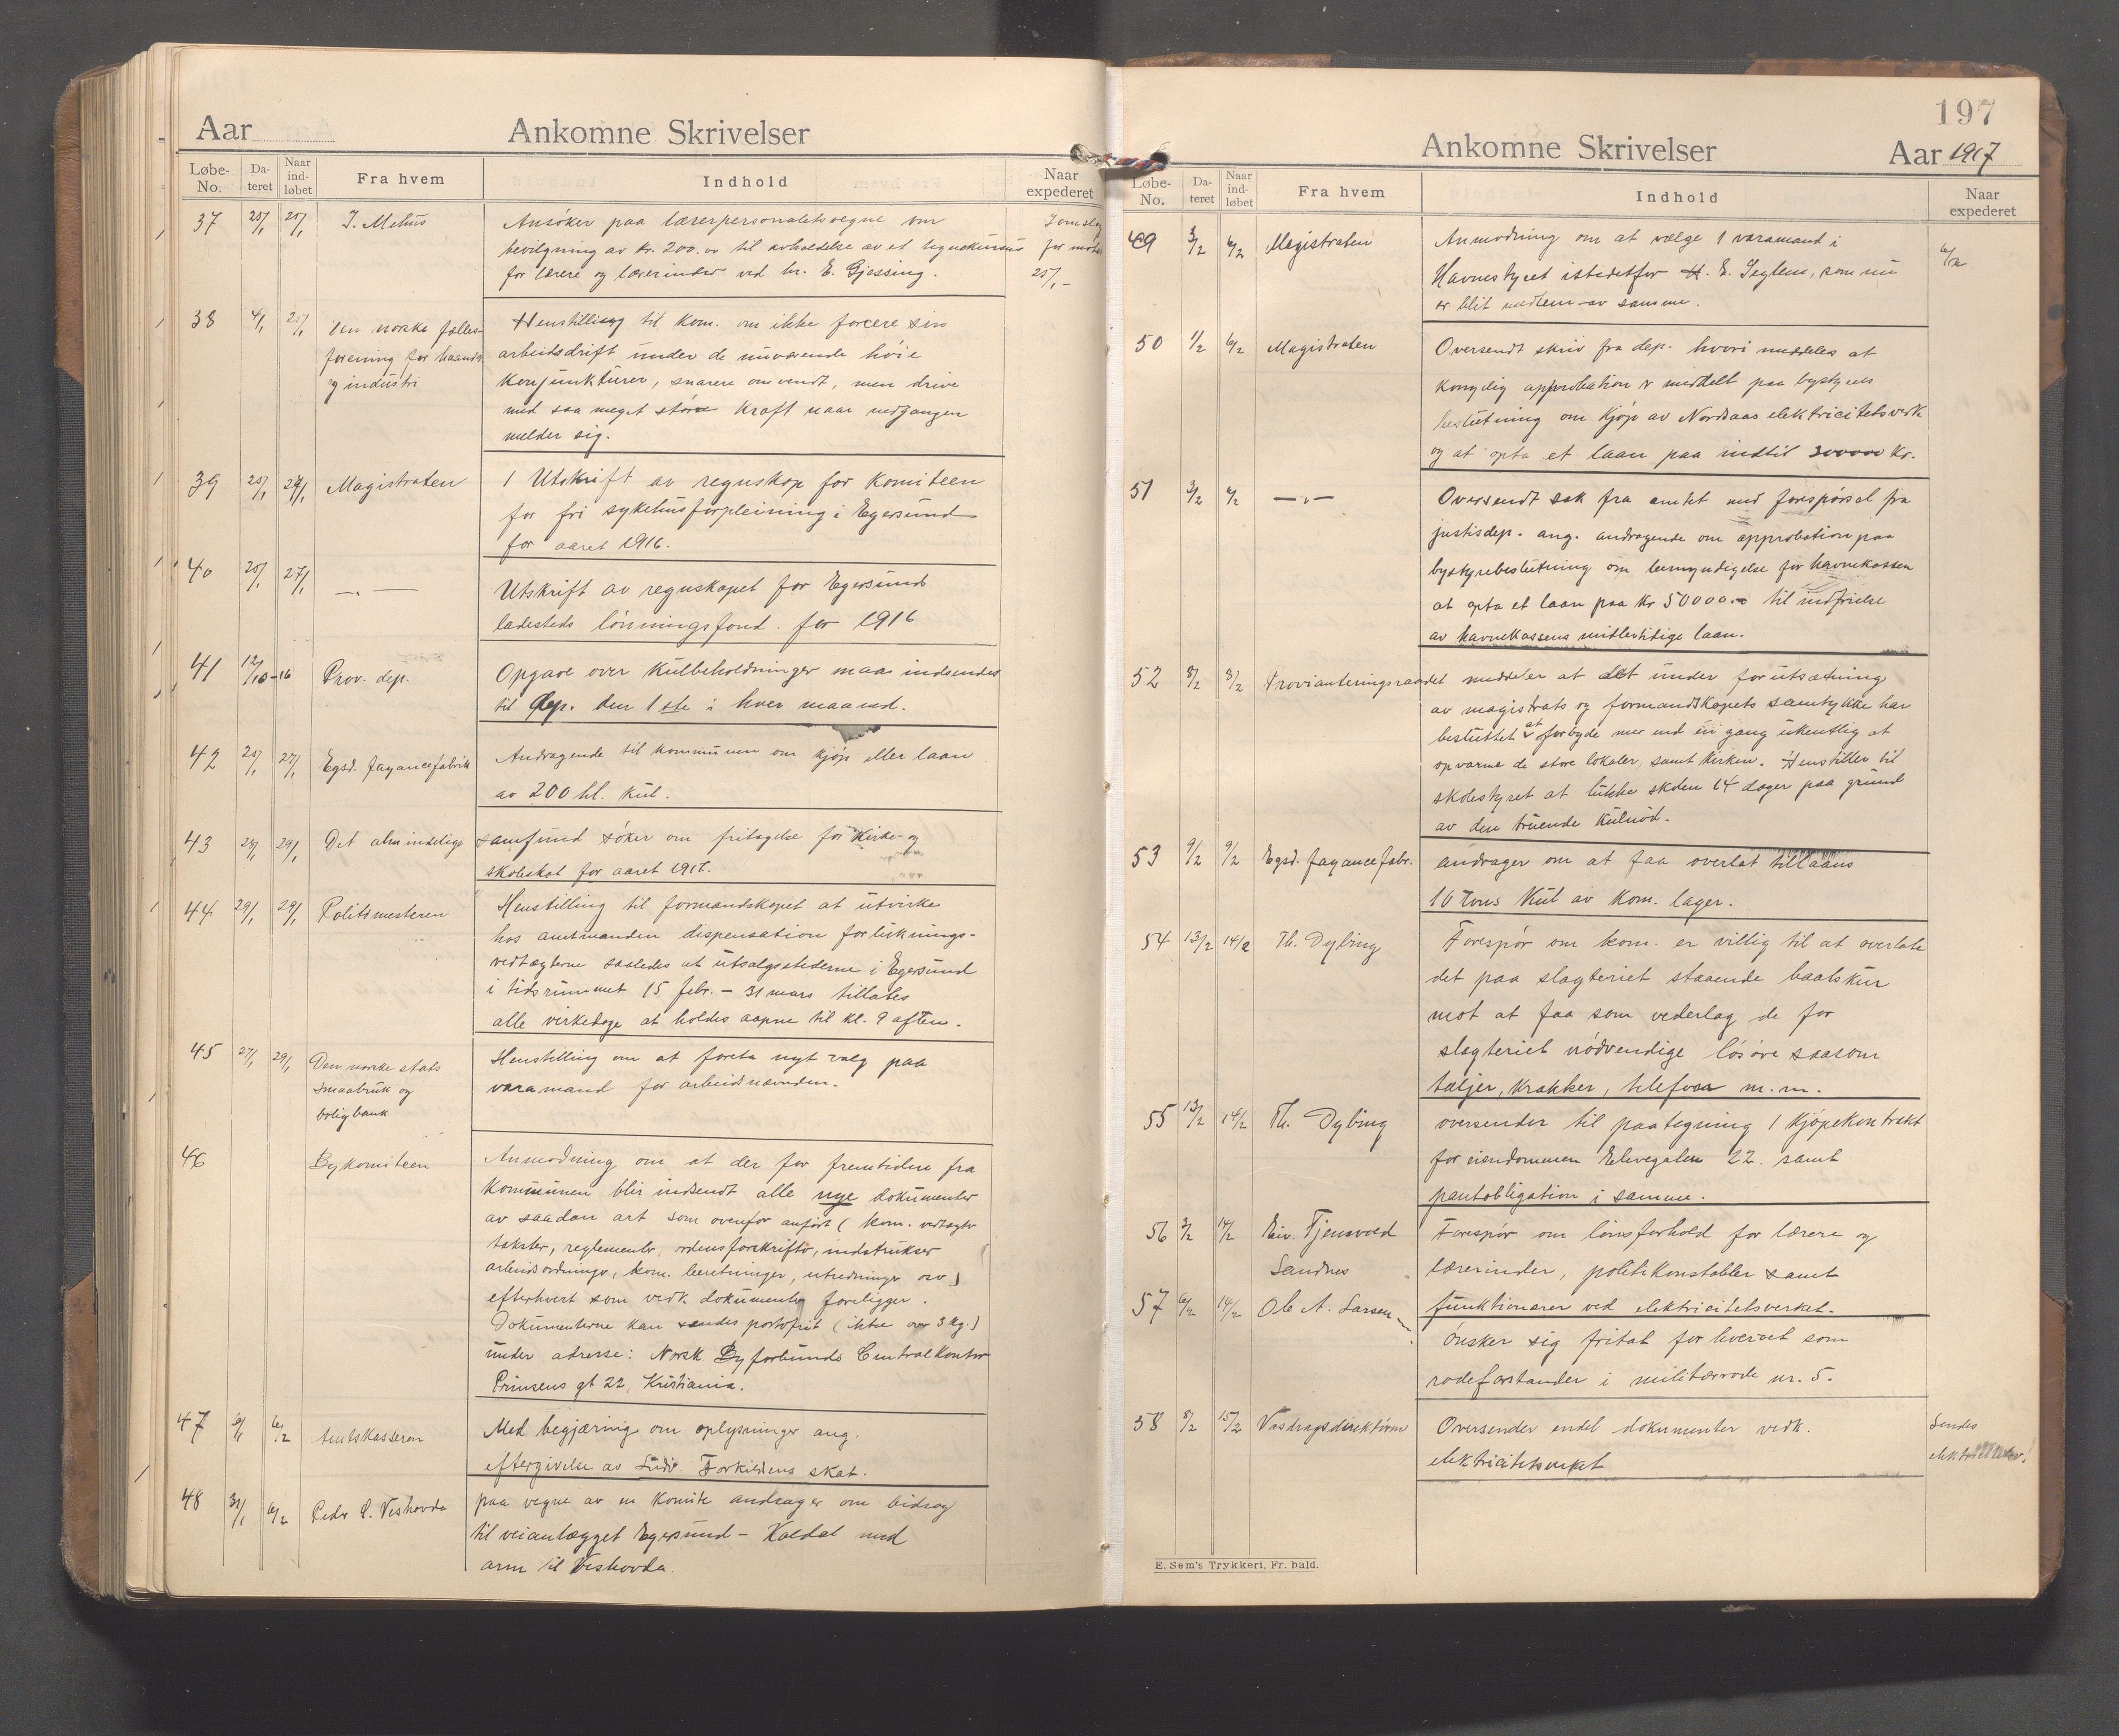 Aar
Ankomne Skrivelser
Løbe-No. Da-teret Naar ind-løbet Fra hvem Indhold Naar expederet
37 25/1 25/1 I. Mehus Ansøker paa lærerpersonalets vegne om
bevilgning av kr. 200.00 til avholdelse av et tegnekursus for møtet
for lærere og lærerinder ved hr. E. Gjessing. 25/1 -
38 4/1 25/1 Den norske fælles- Henstilling til kom. om ikke forcere sin
forening for haandv. arbeidsdrift under de nuværende høie
og industri konjunkturer, snarere omvendt, men drive
med saa meget større kraft naar nedgangen
melder sig.
39 25/1 27/1 Magistraten 1 Utskrift av regnskap for Komiteen
for fri sykehusforpleining i Egersund
for aaret 1916.
40 25/1 27/1 —„— Utskrift av regnskapet for Egersund
ladesteds lønningsfond. for 1916
41 12/10-16 Prov. dep. Opgave over Kulbeholdninger maa indsendes
til dep. den 1ste i hver maaned.
42 25/1 27/1 Egsd. fayancefabrik Andragende til kommunen om kjøp eller laan
av 200 hl. kul.
43 29/1 Det almindelige samfund søker om fritagelse for Kirke- og
skoleskat for aaret 1917.
44 29/1 29/1 Politimesteren Henstilling til formandskapet at utvirke
hos amtmanden dispensation for luknings-
vedtægterne saaledes at utsalgsstederne i Egersund
i tidsrummet 15 febr. - 31 mars tillates
alle virkedage at holdes aapne til kl. 9 aften.
45 27/1 29/1 Den norske stats Henstilling om at foreta nyt valg paa
smaabruk og varamand for arbeidsnævnden.
boligbank
46 Bykomiteen Anmodning om at der for fremtiden fra
kommunen blir indsendt alle nye dokumenter
av saadan art som ovenfor anført (kom. vedtægter
takster, reglementer, ordensforskrifter, instrukser
arbeidsordninger, kom. beretninger, utredninger osv)
efterhvert som vedk. dokumenter foreligger.
Dokumenterne kan sendes portofrit (ikke over 3 kg.)
under adresse: Norsk Byforbunds Centralkontor
Prinsens gt 22, Kristiania.
47 6/2 Amtskasseren Med begjæring om oplysninger ang.
eftergivelse av Ludv. Torkildsens skat.
48 31/1 6/2 Peder S. Veshovda paa vegne av en komite andrager om bidrag
til veianlægget Egersund - Kaldal med
arm til Veshovda.
197
Ankomne Skrivelser
Aar 1917
Løbe-No. Da-teret Naar ind-løbet Fra hvem Indhold Naar expederet
49 3/2 6/2 Magistraten Anmodning om at vælge 1 varamand i 6/2
Havnestyret istedetfor H. E. Seglem, som nu
er blit medlem av samme.
50 1/2 6/2 Magistraten Oversendt skriv fra dep. hvori meddeles at
kongelig approbation er meddelt paa bystyrets
beslutning om kjøp av Nordaas elektricitetsverk
og at opta et laan paa indtil 300000 Kr.
51 3/2 6/2 —„— Oversendt sak fra amtet med forespørsel fra
justisdep. ang. andragende om approbation paa
bystyrebeslutning om bemyndigelse for havnekassen
at opta et laan paa Kr 50000.- til indfrielse
av havnekassens midlertidige laan.
52 8/2 8/2 Provianteringsraadet meddeler at det under forutsætning
av magistrats og formandskapets samtykke har
besluttet at forbyde mer end en gang ukentlig at
opvarme de store lokaler, samt kirken. Henstiller til
skolestyret at lukke skolen 14 dager paa grund
av den truende kulnød.
53 9/2 9/2 Egsd. fayancefabr. andrager om at faa overlat tillaans
10 Tons Kul av kom. lager.
54 13/2 14/2 Th. Dybing Forespør om kom. er villig til at overlate
det paa slagteriet staaende baatskur
mot at faa som vederlag de for
slagteriet nødvendige løsøre saasom
taljer, krakker, telefon m.m.
55 13/2 14/2 Th. Dybing oversender til paategning 1 Kjøpekontrakt
for eiendommen Elvegaten 22. samt
pantobligation i samme.
56 3/2 14/2 Eiv. Tjensvold Forespør om lønsforhold for lærere og
Sandnes lærerinder, politikonstabler samt
funktionærer ved elektricitetsverket.
57 6/2 14/2 Ole A. Larsen Ønsker sig fritat for hvervet som
rodeforstander i militærrode nr. 5.
58 8/2 15/2 Vasdragsdirektøren Oversender endel dokumenter vedk. Sendes
elektricitetsverket
E. Sem's Trykkeri, Fr. hald.